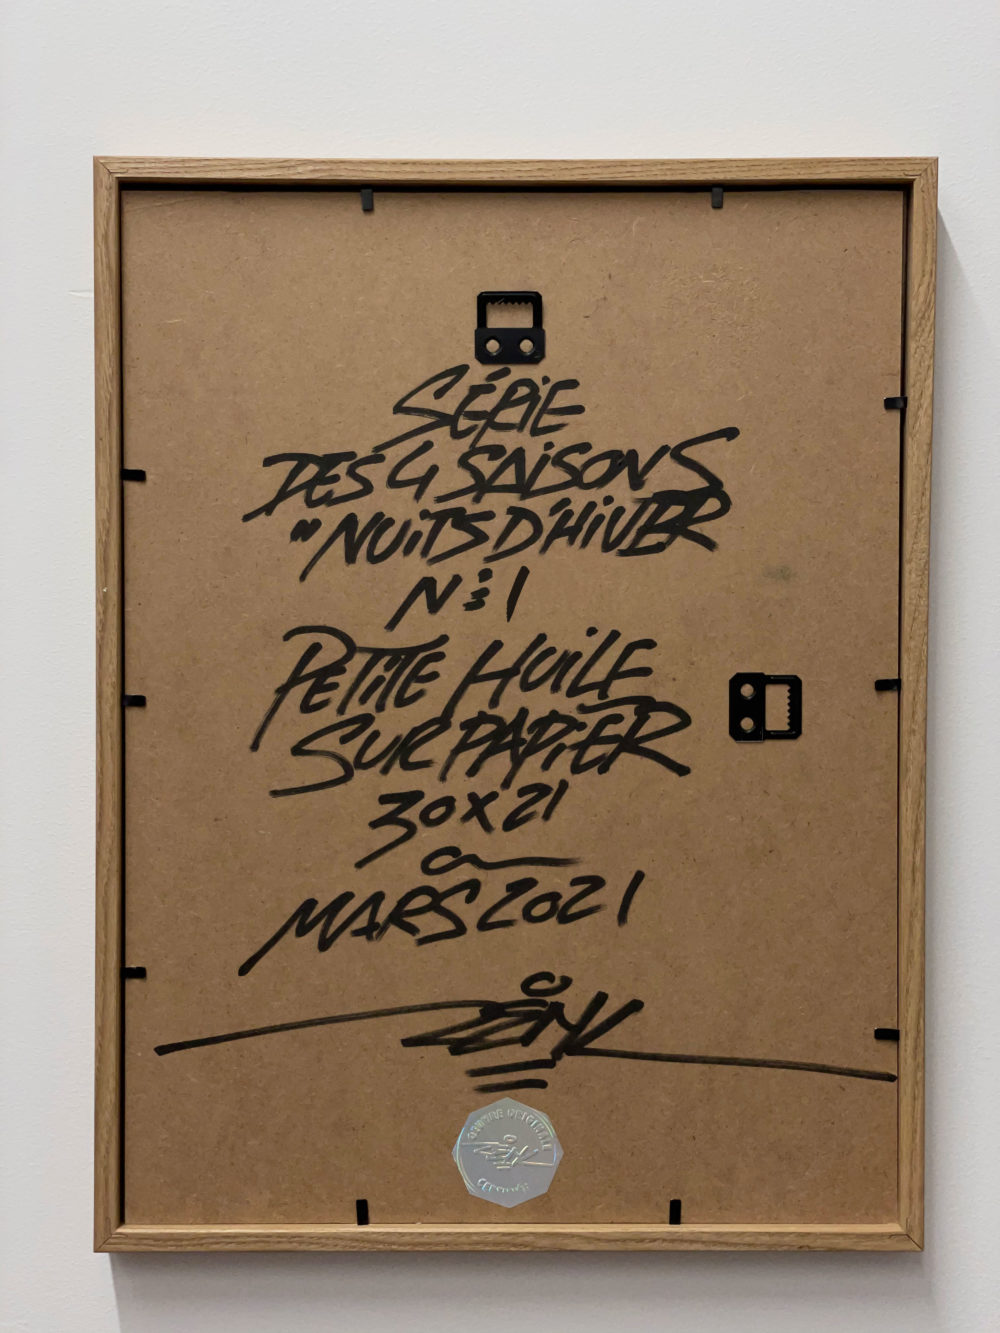 SÉRIE
DES 4 SAISONS
"NUITS D'HIVER
N° 1
PETITE HUILE
SUR PAPIER
30X21
MARS 2021
OEUVRE ORIGINALE